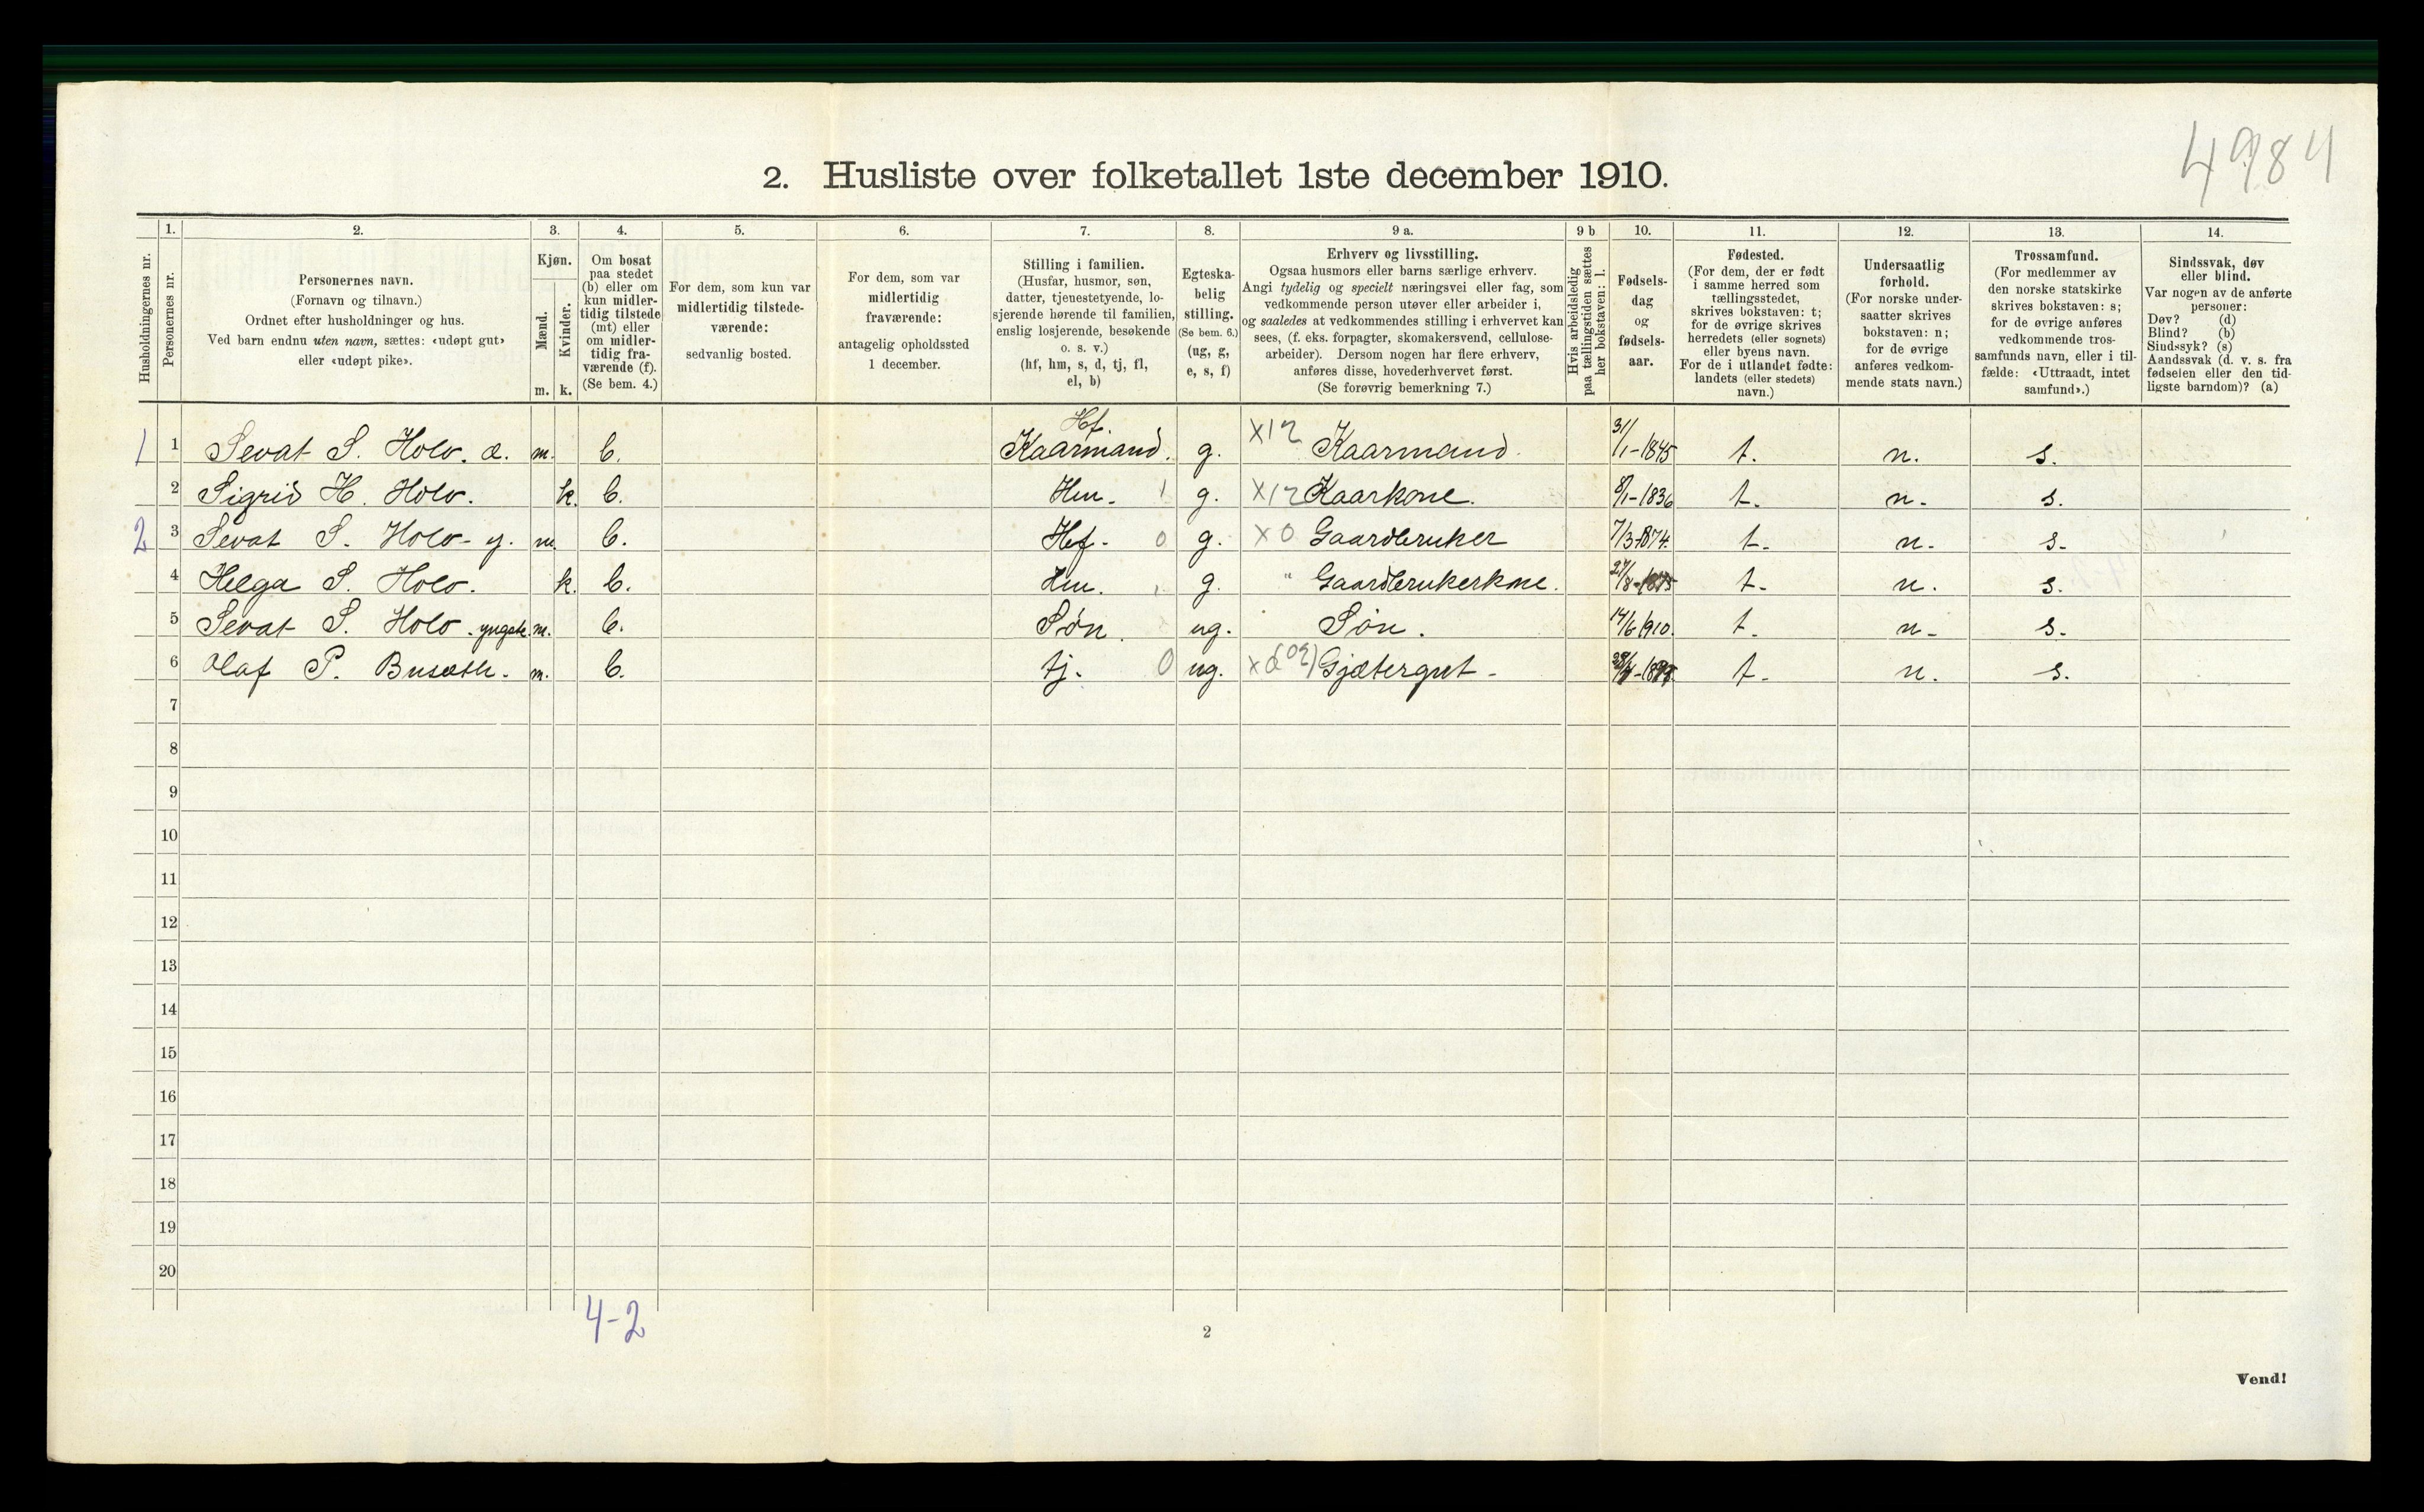 4984
2. Husliste over folketallet 1ste december 1910.
Husholdningernes nr.
1.
Personernes nr.
2.
Personernes navn.
(Fornavn og tilnavn.)
Ordnet efter husholdninger og hus.
Ved barn endnu uten navn, sættes: «udøpt gut»
eller «udøpt pike».
3.
Kjøn.
Mænd.
Kvinder.
m. k.
4.
Om bosat
paa stedet
(b) eller om
kun midler-
tidig tilstede
(mt) eller
om midler-
tidig fra-
værende (f).
(Se bem. 4.)
5.
For dem, som kun var
midlertidig tilstede-
værende:
sedvanlig bosted.
6.
For dem, som var
midlertidig
fraværende:
antagelig opholdssted
1 december.
7.
Stilling i familien.
(Husfar, husmor, søn,
datter, tjenestetyende, lo-
sjerende hørende til familien,
enslig losjerende, besøkende
o. s. v.)
(hf, hm, s, d, tj, fl,
el, b)
8.
Egteska-
belig
stilling.
(Se bem. 6.)
(ug, g,
e, s, f)
9 a.
Erhverv og livsstilling.
Ogsaa husmors eller barns særlige erhverv.
Angi tydelig og specielt næringsvei eller fag, som
vedkommende person utøver eller arbeider i,
og saaledes at vedkommendes stilling i erhvervet kan
sees, (f. eks. forpagter, skomakersvend, cellulose-
arbeider). Dersom nogen har flere erhverv,
anføres disse, hovederhvervet først.
(Se forøvrig bemerkning 7.)
9 b
Hvis arbeidsledig
paa tællingstiden sættes
her bokstaven: l.
10.
Fødsels-
dag
og
fødsels-
aar.
11.
Fødested.
(For dem, der er født
i samme herred som
tællingsstedet,
skrives bokstaven: t;
for de øvrige skrives
herredets (eller sognets)
eller byens navn.
For de i utlandet fødte:
landets (eller stedets)
navn.)
12.
Undersaatlig
forhold.
(For norske under-
saatter skrives
bokstaven: n;
for de øvrige
anføres vedkom-
mende stats navn.)
13.
Trossamfund.
(For medlemmer av
den norske statskirke
skrives bokstaven: s;
for de øvrige anføres
vedkommende tros-
samfunds navn, eller i til-
fælde: «Uttraadt, intet
samfund».)
14.
Sindssvak, døv
eller blind.
Var nogen av de anførte
personer:
Døv? (d)
Blind? (b)
Sindssyk? (s)
Aandssvak (d. v. s. fra
fødselen eller den tid-
ligste barndom)? (a)
Hf.
1 1 Sevat S. Holo. æ. m. b. Kaarmand. g. X12 Kaarmand. 31/1-1845 t. n. s.
2 Sigrid H. Holo. k. b. Hm. 1 g. X12 Kaarkone. 8/1-1836 t. n. s.
2 3 Sevat S. Holo - y. m. b. Hf. 0 g. X0 Gaardbruker 7/3-1874. t. n. s.
4 Helga S. Holo. k. b. Hm. g. " Gaardbrukerkone. 27/8-1875 t. n. s.
5 Sevat S. Holo. yngste. m. b. Søn. ug. Søn. 14/6 1910. t. n. s.
6 Olaf P. Busæth. m. b. tj. 0 ug. Gjætergut - t. n. s.
7
8
9
10
11
12
13
14
15
16
17
18
19
20
4-2
2
Vend!